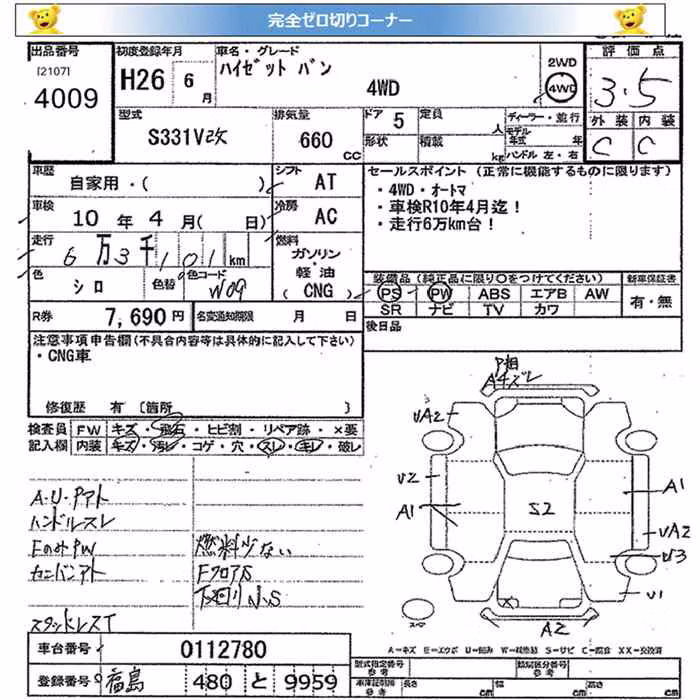 完全ゼロ切りコーナー
出品番号 初度登録年月 車名・グレード 評価点
[2107] ハイゼット バン 2WD
4009 H26 6月 4WD 4WD 3.5
型式 排気量 ドア 定員 ディーラー・並行 外装 内装
S331V改 660 CC 5 人 モデル年式 年 C C
形状 積載 kg ハンドル 左・右
車歴 自家用・( ) シフト AT
セールスポイント (正常に機能するものに限ります)
車検 10年4月( 日) 冷房 AC
・4WD・オートマ
・車検R10年4月迄!
・走行6万km台!
走行 6万3千101km 燃料 ガソリン・軽油(CNG)
色 シロ 色替 色コード W09
装備品(純正品に限り〇をつけてください) 新車保証書
PS PW ABS エアB AW 有・無
SR ナビ TV カワ
R券 7,690円 名変通知期限 月 日
後日品
注意事項申告欄(不具合内容等は具体的に記入して下さい)
・CNG車
修復歴 有〔箇所 〕
検査員 FW キズ・飛石・ヒビ割・リペア跡・×要
記入欄 内装 キズ・汚レ・コゲ・穴・スレ・キレ・破レ
A・U・Pアト
ハンドルスレ
EのみPW 燃料少ない
カンバンアト FフロアS
下回りS
スタッドレスT
P相
Aキズレ
UA2
U2 A1
A1 S2
UA2
U3
U1
A2
スペア
A=キズ E=エクボ U=凹み W=補修跡 S=サビ C=腐食 XX=交換済
車台番号 0112780
登録番号 福島 480 と 9959
型式指定番号 参考 類別区分番号 参考
車庫証明用 参考 長さ cm 幅 cm 高さ cm